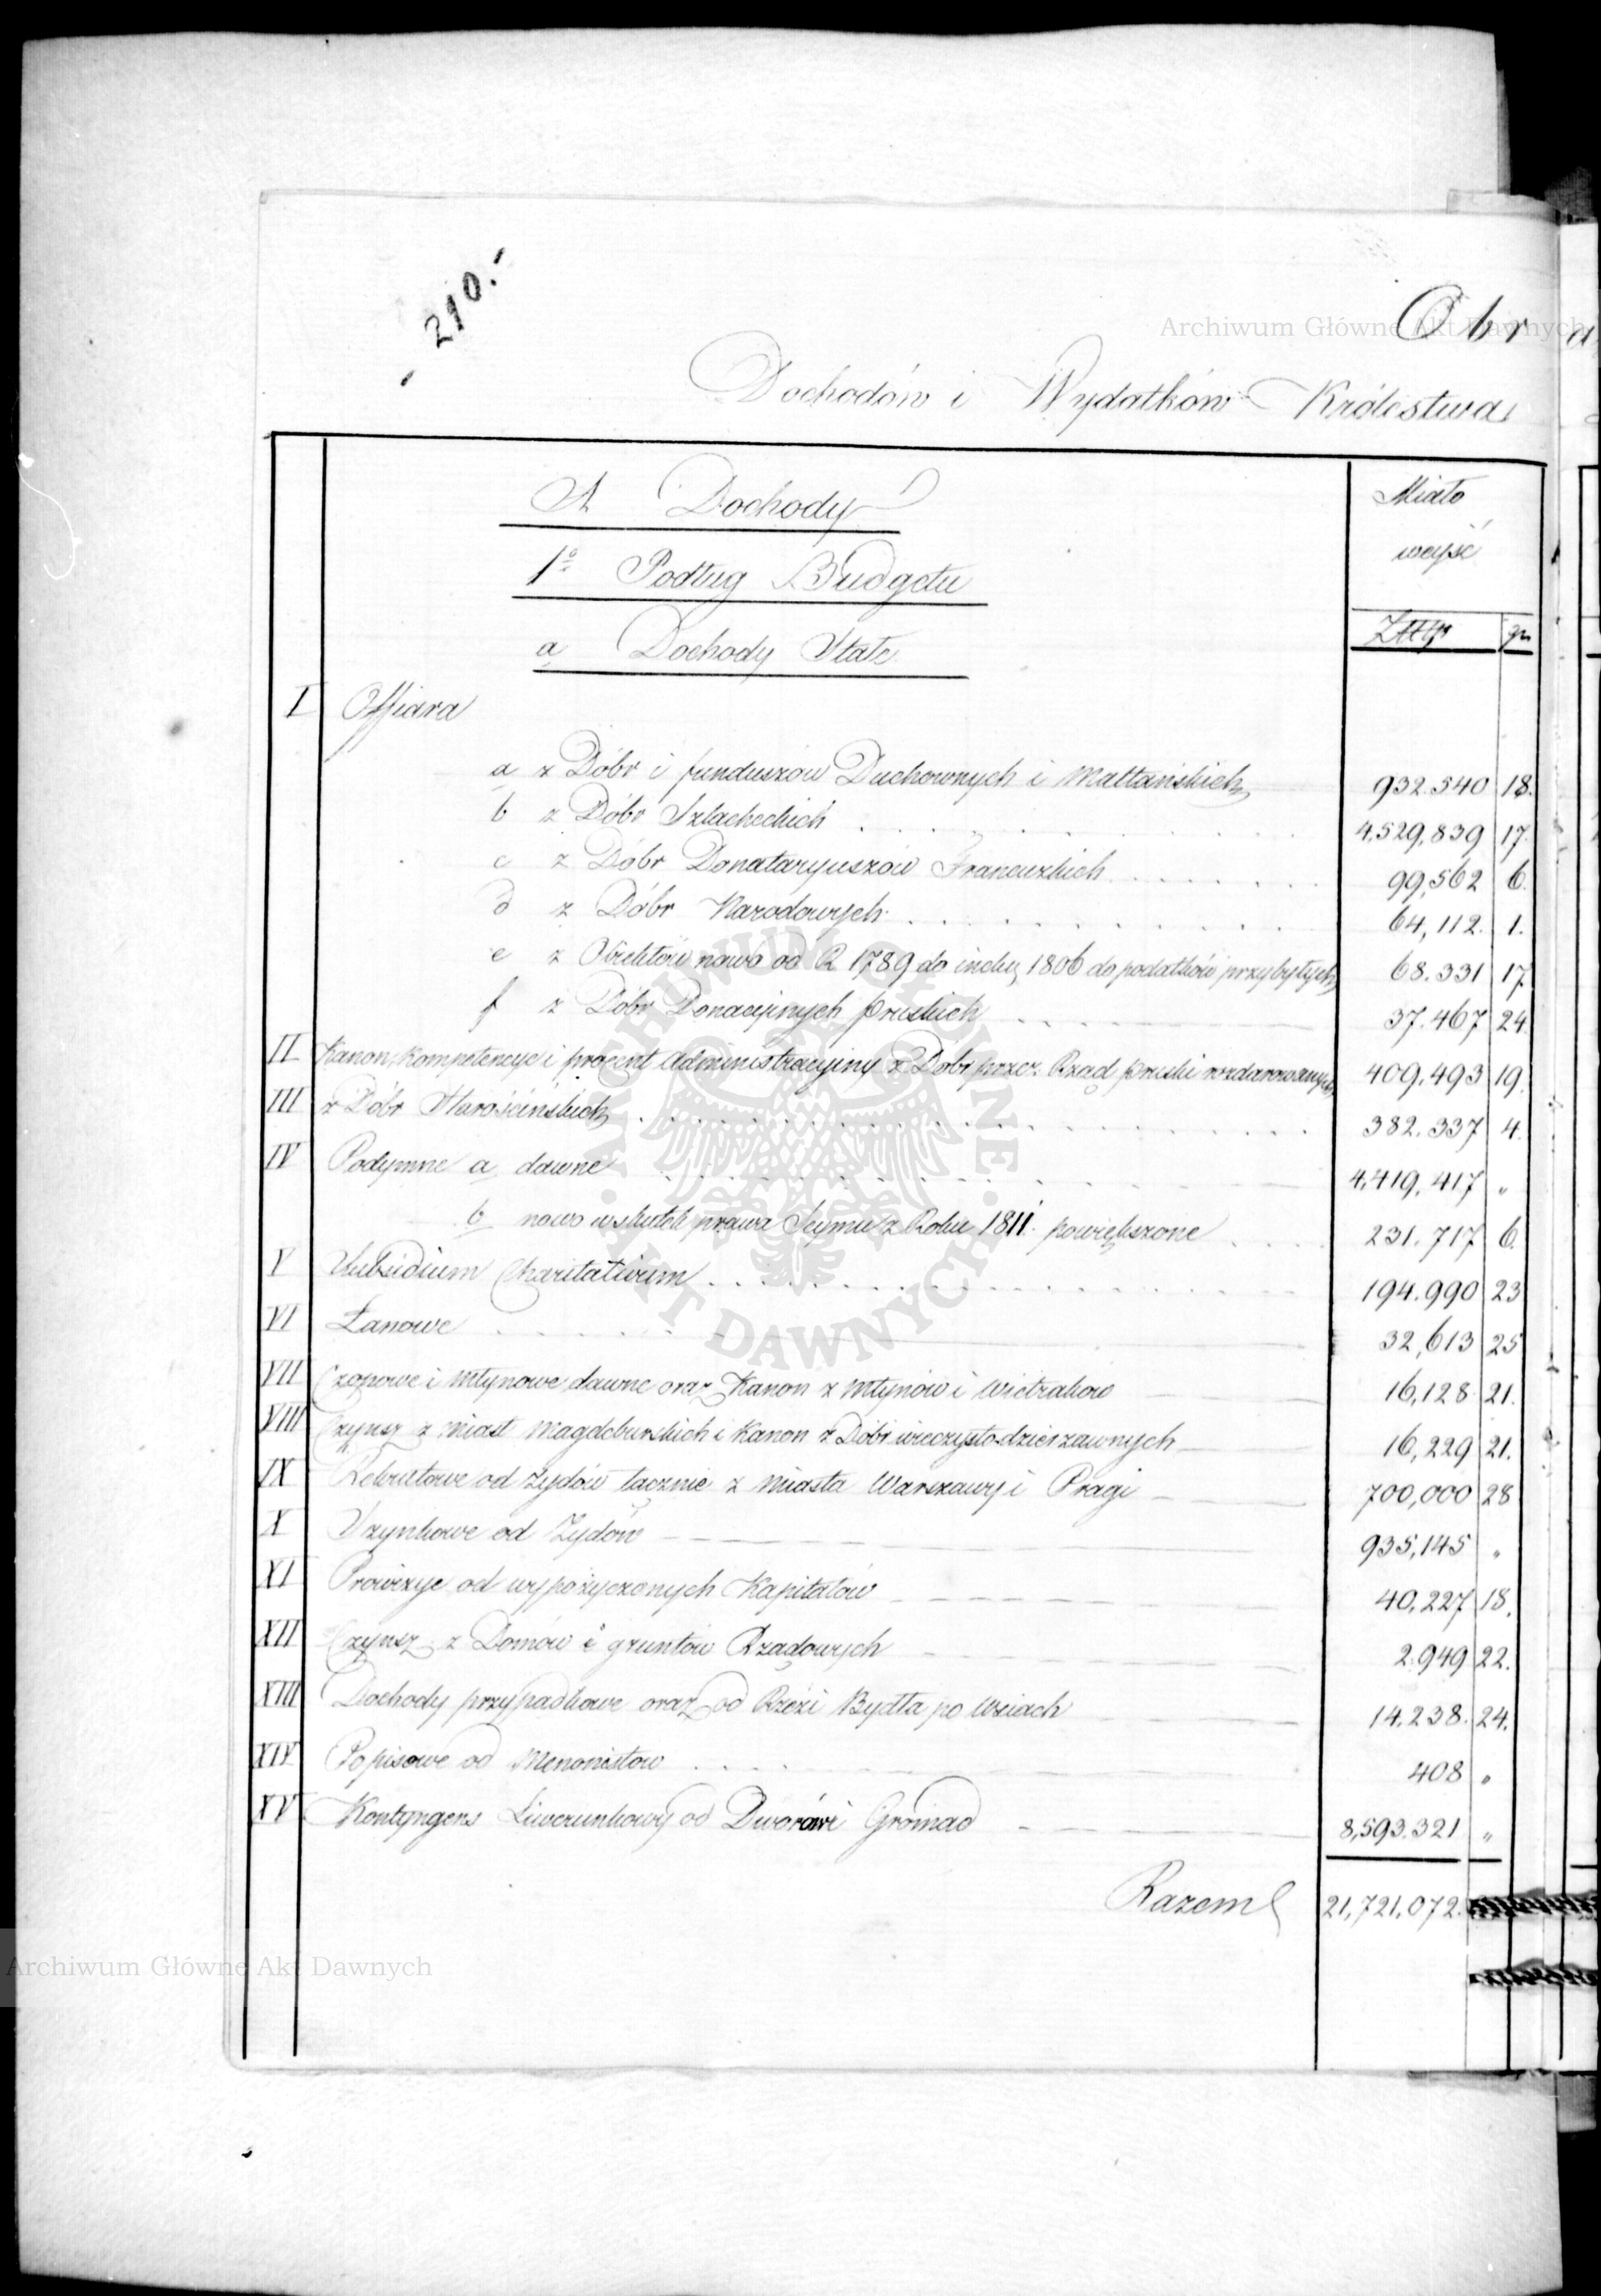 210.
Archiwum Główne Akt Dawnych
Obra
Dochodów i Wydatków Królestwa
A Dochody
Miało
weyść
1o Podług Budgetu
Złtp gr
a Dochody Stałe
I Offiara
a z Dóbr i funduszów Duchownych i Maltańskich 932.540 18.
b z Dóbr Szlacheckich 4,529,839 17.
c z Dóbr Donataryuszów Francuzkich 99,562 6.
d z Dóbr Narodowych 64,112. 1.
e z Obiektów nowo od R 1789 do inclu, 1806 do podatków przybyłych 68.331 17.
f z Dóbr Donacyjnych pruskich 37.467 24.
II Kanon, Kompetencye i procent administracyjny z Dobr przez Rząd pruski rozdarowanych 409,493 19.
III z Dóbr Starościńskich 382.337 4.
IV Podymne a dawne 4,419,417 "
b nowo wskutek prawa Seymu z Roku 1811. powiększone 231.717 6.
V Subsidium Charitativum 194.990 23
VI Łanowe 32,613 25
VII Czopowe i młynowe dawne oraz Kanon z młynów i wietraków 16,128 21.
VIII Czynsz z miast Magdeburskich i Kanon z Dóbr wieczysto-dzierzawnych 16,229 21.
IX Rekrutowe od Żydów łącznie z miasta Warszawy i Pragi 700,000 28
X Szynkowe od Żydów 935,145 "
XI Prowizye od wypożyczonych Kapitałów 40,227 18.
XII Czynsz z Domów i gruntów Rządowych 2.949 22.
XIII Dochody przypadkowe oraz od Rzezi Bydła po wsiach 14.238. 24.
XIV Popisowe od Menonistow 408 "
XV Kontyngens Liwerunkowy od Dworów i Gromad 8,593.321 "
Razem 21,721,072.
Archiwum Główne Akt Dawnych
ARCHIWUM GŁÓWNE AKT DAWNYCH